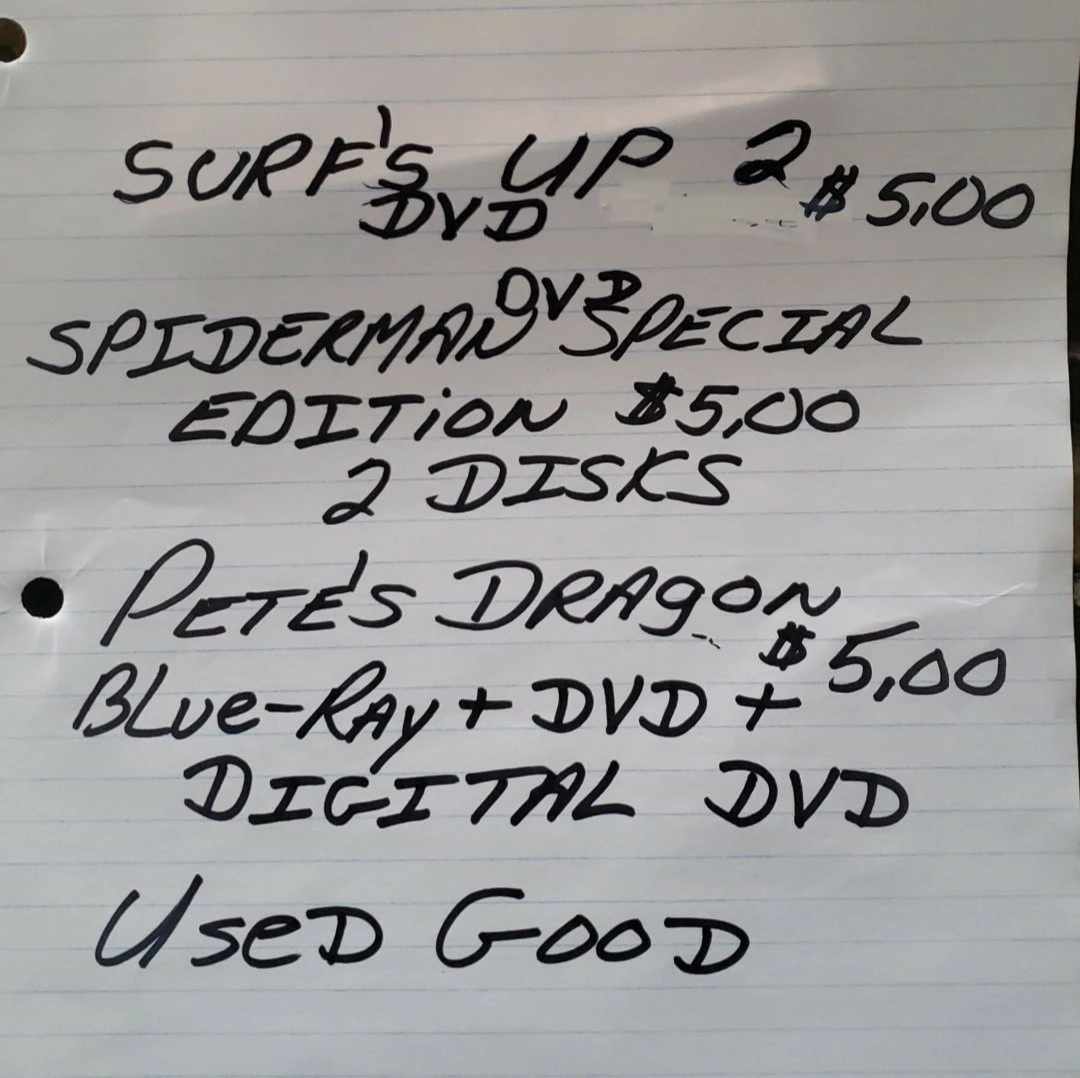 SURF'S UP 2 $5,00
DVD
DVD
SPIDERMAN SPECIAL
EDITION $5,00
2 DISKS
PETE'S DRAGON
$5,00
BLUe-RAy + DVD +
DIGITAL DVD
USeD GOOD